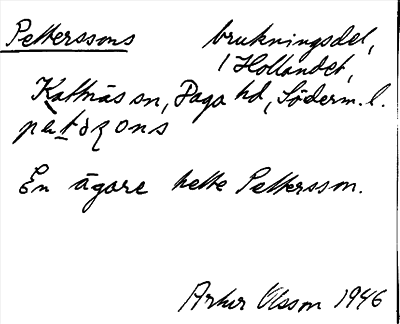 Petterssons brukningsdel,
i Hollandet,
Kattnäs sn, Daga hd, Söderm. l.
pętąʀons
En ägare hette Pettersson.
Artur Olsson 1946